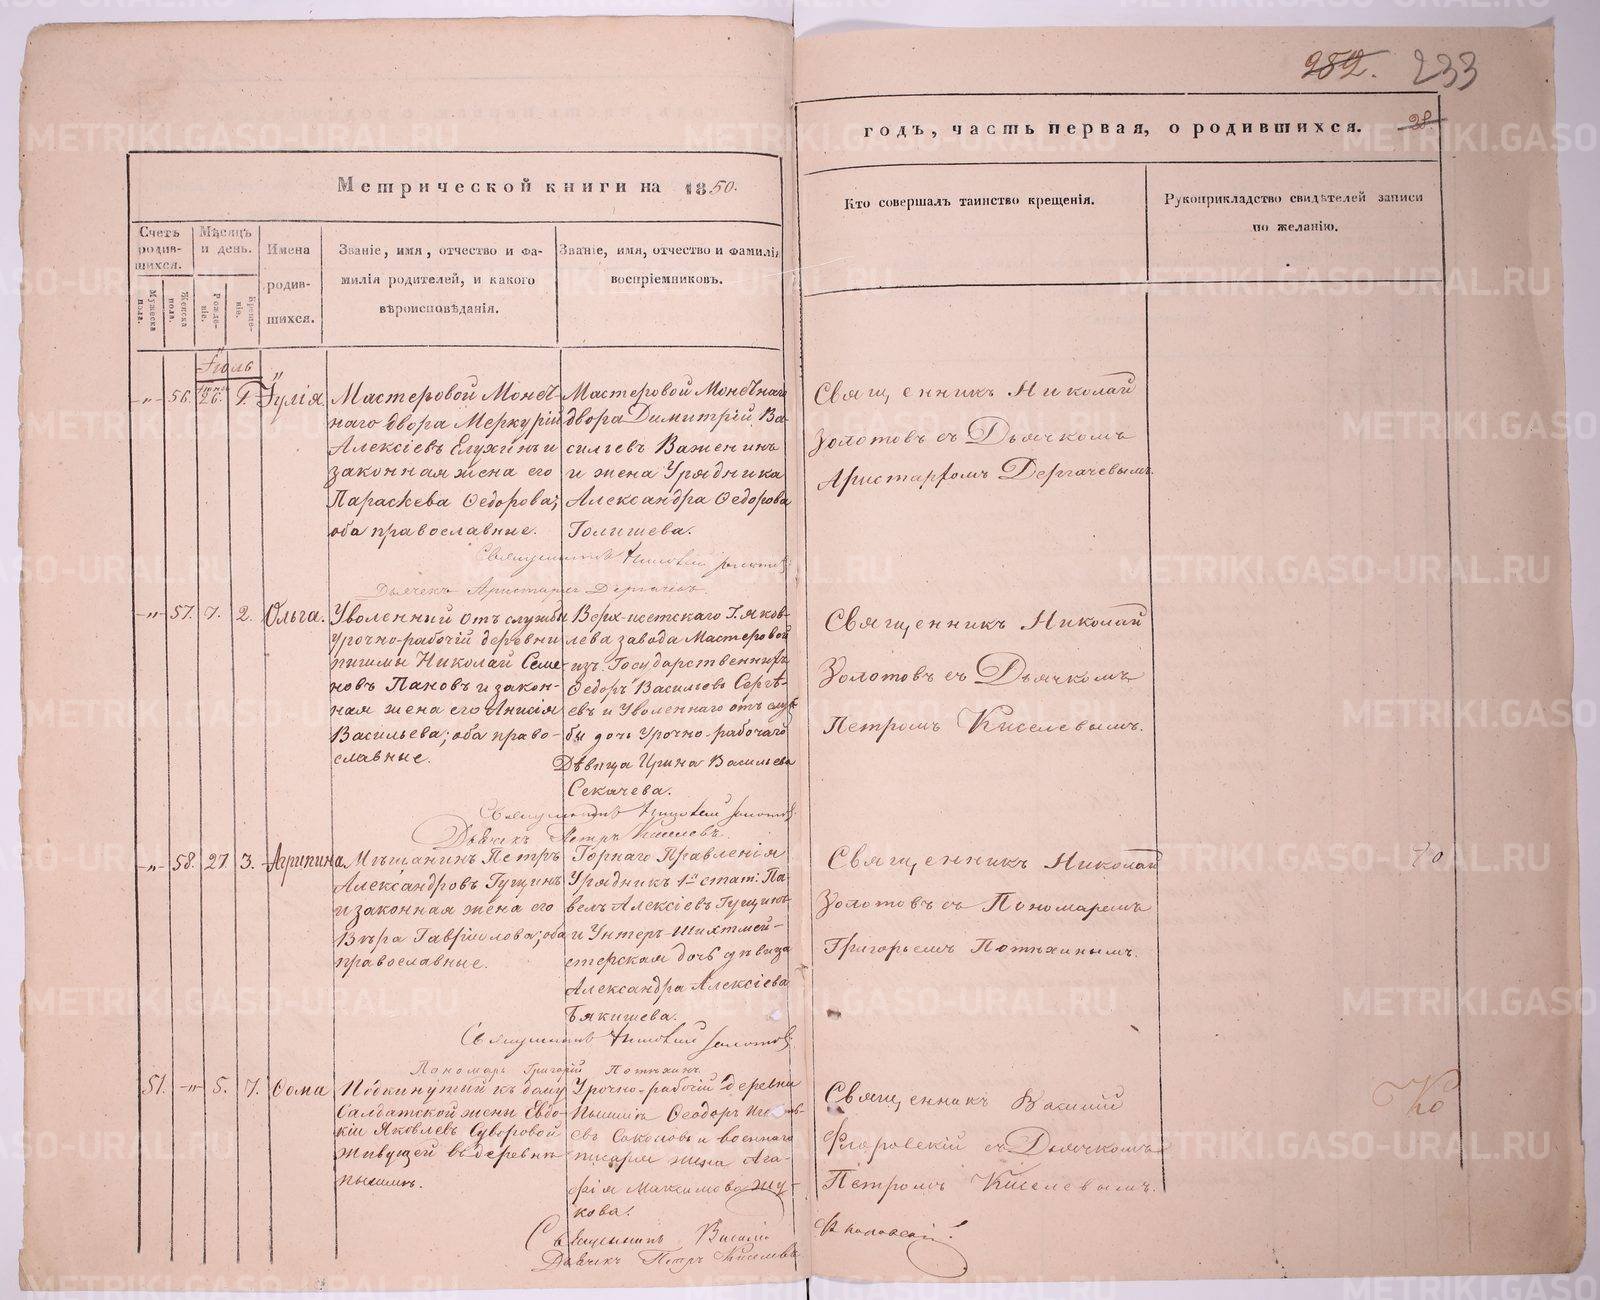 282. 233
28
Метрической книги на 1850.
годъ, часть первая, о родившихся.
Счетъ родив-шихся.
Мужеска пола.
Женска пола.
Мѣсяцъ и день.
Рожде-ніе.
Креще-ніе.
Имена
родив-
шихся.
Званіе, имя, отчество и фа-
милія родителей, и какого
вѣроисповѣданія.
Званіе, имя, отчество и фамилія
воспріемниковъ.
Кто совершалъ таинство крещенія.
Рукоприкладство свидѣтелей записи
по желанію.
Іюль
-"- 56. 26. 1. Іулія
Мастеровой Монет-
наго двора Меркурій
Алексіевъ и
законная жена его
Параскева Ѳедорова;
оба православные.
Мастеровой Монетнаго
двора Димитрій Ва-
сильевъ Важенинъ
и жена Урядника
Александра Ѳедорова
Голишева.
Священникъ Николай
Золотовъ съ Дьячкомъ
Аристархомъ Дергачевымъ
Священникъ Николай Золотовъ
Дьячекъ Аристархъ Дергачевъ
-"- 57. 1. 2. Ольга.
Уволенный отъ службы
Урочно-рабочій деревни
Пышмы Николай Семе-
новъ Пановъ и закон-
ная жена его Анисія
Васильева; оба право-
славные.
Верх-исетскаго Г. Яков-
лева завода Мастеровой
изъ Государственныхъ
Ѳедоръ Васильевъ Сергѣ-
евъ и Уволеннаго отъ служ-
бы дочь Урочно-рабочаго
Дѣвица Ирина Васильева
Секачева.
Священникъ Николай
Золотовъ съ Дьячкомъ
Петромъ Киселевымъ.
Священникъ Николай Золотовъ
Дьячекъ Петръ Киселевъ.
-"- 58. 27. 3. Агрипина
Мѣщанинъ Петръ
Александровъ Гущинъ
и законная жена его
Вѣра Гавріилова; оба
православные.
Горнаго Правленія
Урядникъ 1й стат: Па-
велъ Алексіевъ Гущинъ
и Унтеръ-Шихтмей-
стерская дочь дѣвица
Александра Алексіева
Бякишева.
Священникъ Николай
Золотовъ съ Пономаремъ
Григорьемъ Потѣхинымъ.
Священникъ Николай Золотовъ
Пономарь Григорій Потѣхинъ
51. -"- 5. 7. Ѳома
Подкинутый къ дому
Салдатской жены Евдо-
кіи Яковлевъ Суворовой
живущей въ деревнѣ
Пышмѣ.
Урочно-рабочій деревни
Пышмы Ѳеодоръ
евъ Соколовъ и военнаго
писаря жена Ага-
фія Максимова Жу-
кова.
Священникъ Василій
Флоровскій съ Дьячкомъ
Петромъ Киселевымъ.
Священникъ Василій Флоровскій.
Дьячекъ Петръ Киселевъ
METRIKI.GASO-URAL.RU